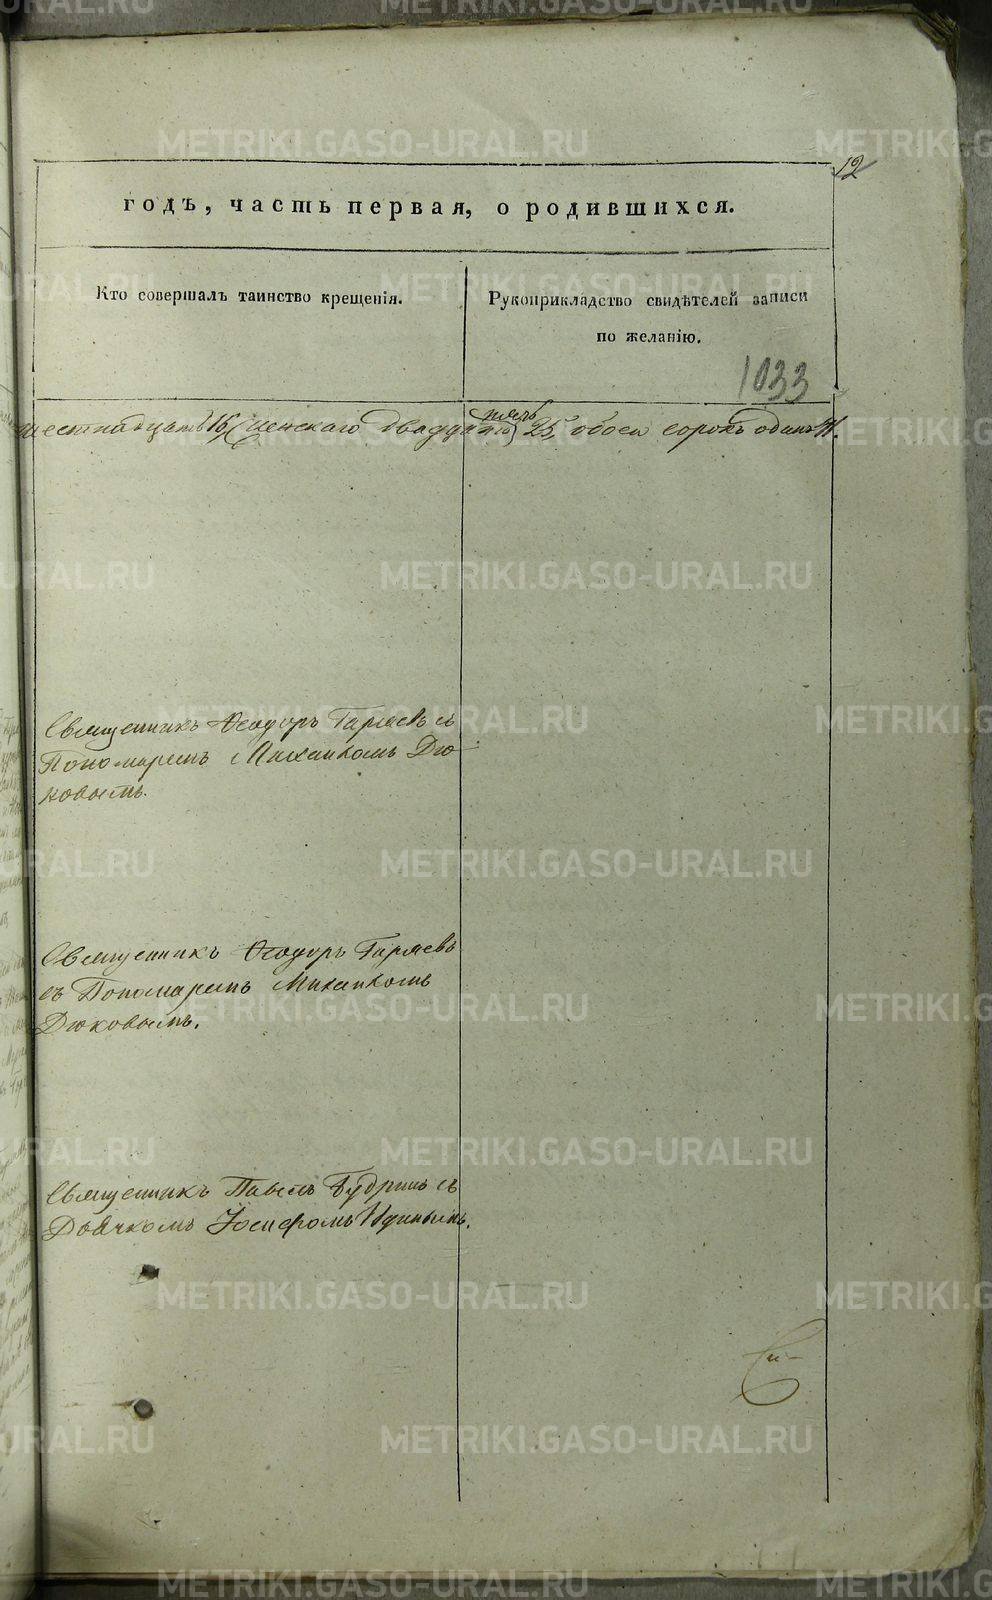 12
годъ, часть первая, о родившихся.
Кто совершалъ таинство крещенія.
Рукоприкладство свидѣтелей записи
по желанію.
1033
пять
шестнадцать 16, женскаго двадцать 25, обоего сорокъ одинъ 41.
Священникъ Ѳеодоръ Гаряевъ съ
Пономаремъ Михаиломъ Дю
ковымъ.
Священникъ Ѳеодоръ Гаряевъ
съ Пономаремъ Михаиломъ
Дюковымъ.
Священникъ Павелъ Будринъ съ
Дьячкомъ Іосифомъ
METRIKI.GASO-URAL.RU